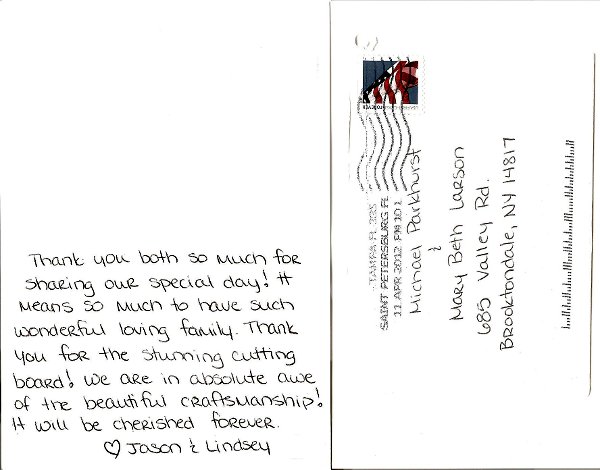 Thank you both so much for
sharing our special day! It
means so much to have such
wonderful loving family. Thank
you for the stunning cutting
board! We are in absolute awe
of the beautiful craftsmanship!
It will be cherished forever.
♡ Jason & Lindsey
FOREVER
TAMPA FL 335
SAINT PETERSBURG FL
11 APR 2012 PM 10 L
Michael Parkhurst
&
Mary Beth Larson
685 Valley Rd.
Brooktondale, NY 14817